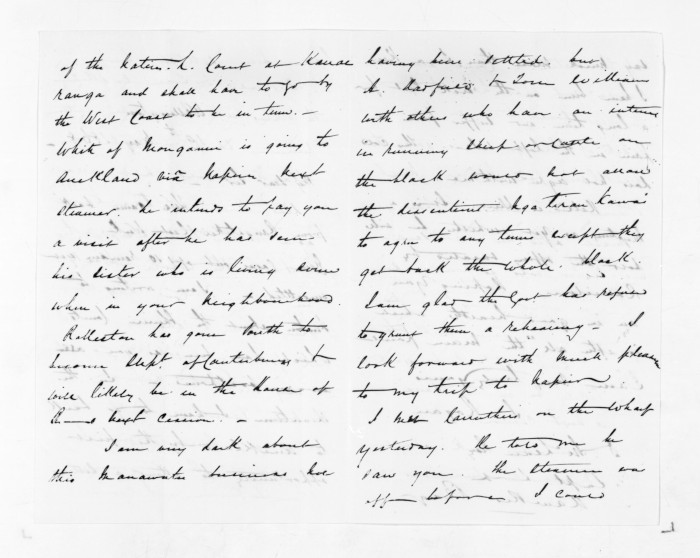 of the Native L. Court at Kauae
ranga and shall have to go by
the West Coast to be in time. —
White of Mongonui is going to
Auckland viâ Napier next
steamer. he intends to pay you
a visit after he has seen
his sister who is living some
where in your neighbourhood.
Rolleston has gone South to
become Supt. of Canterbury &
will likely be in the House of
R— next session. —
I am very dark about
this Manawatu business not
having been settled but
& Tom William
with others who have an interest
in running sheep or cattle on
the block would not allow
the dissentient Ngatiraukawa's
to agree to any terms except they
get back the whole block
I am glad the Govt has refused
to grant them a rehearing — I
look forward with much pleasure
to my trip to Napier
I met Carruthers on the wharf
yesterday. He told me he
saw you. the steamer was
off before I could